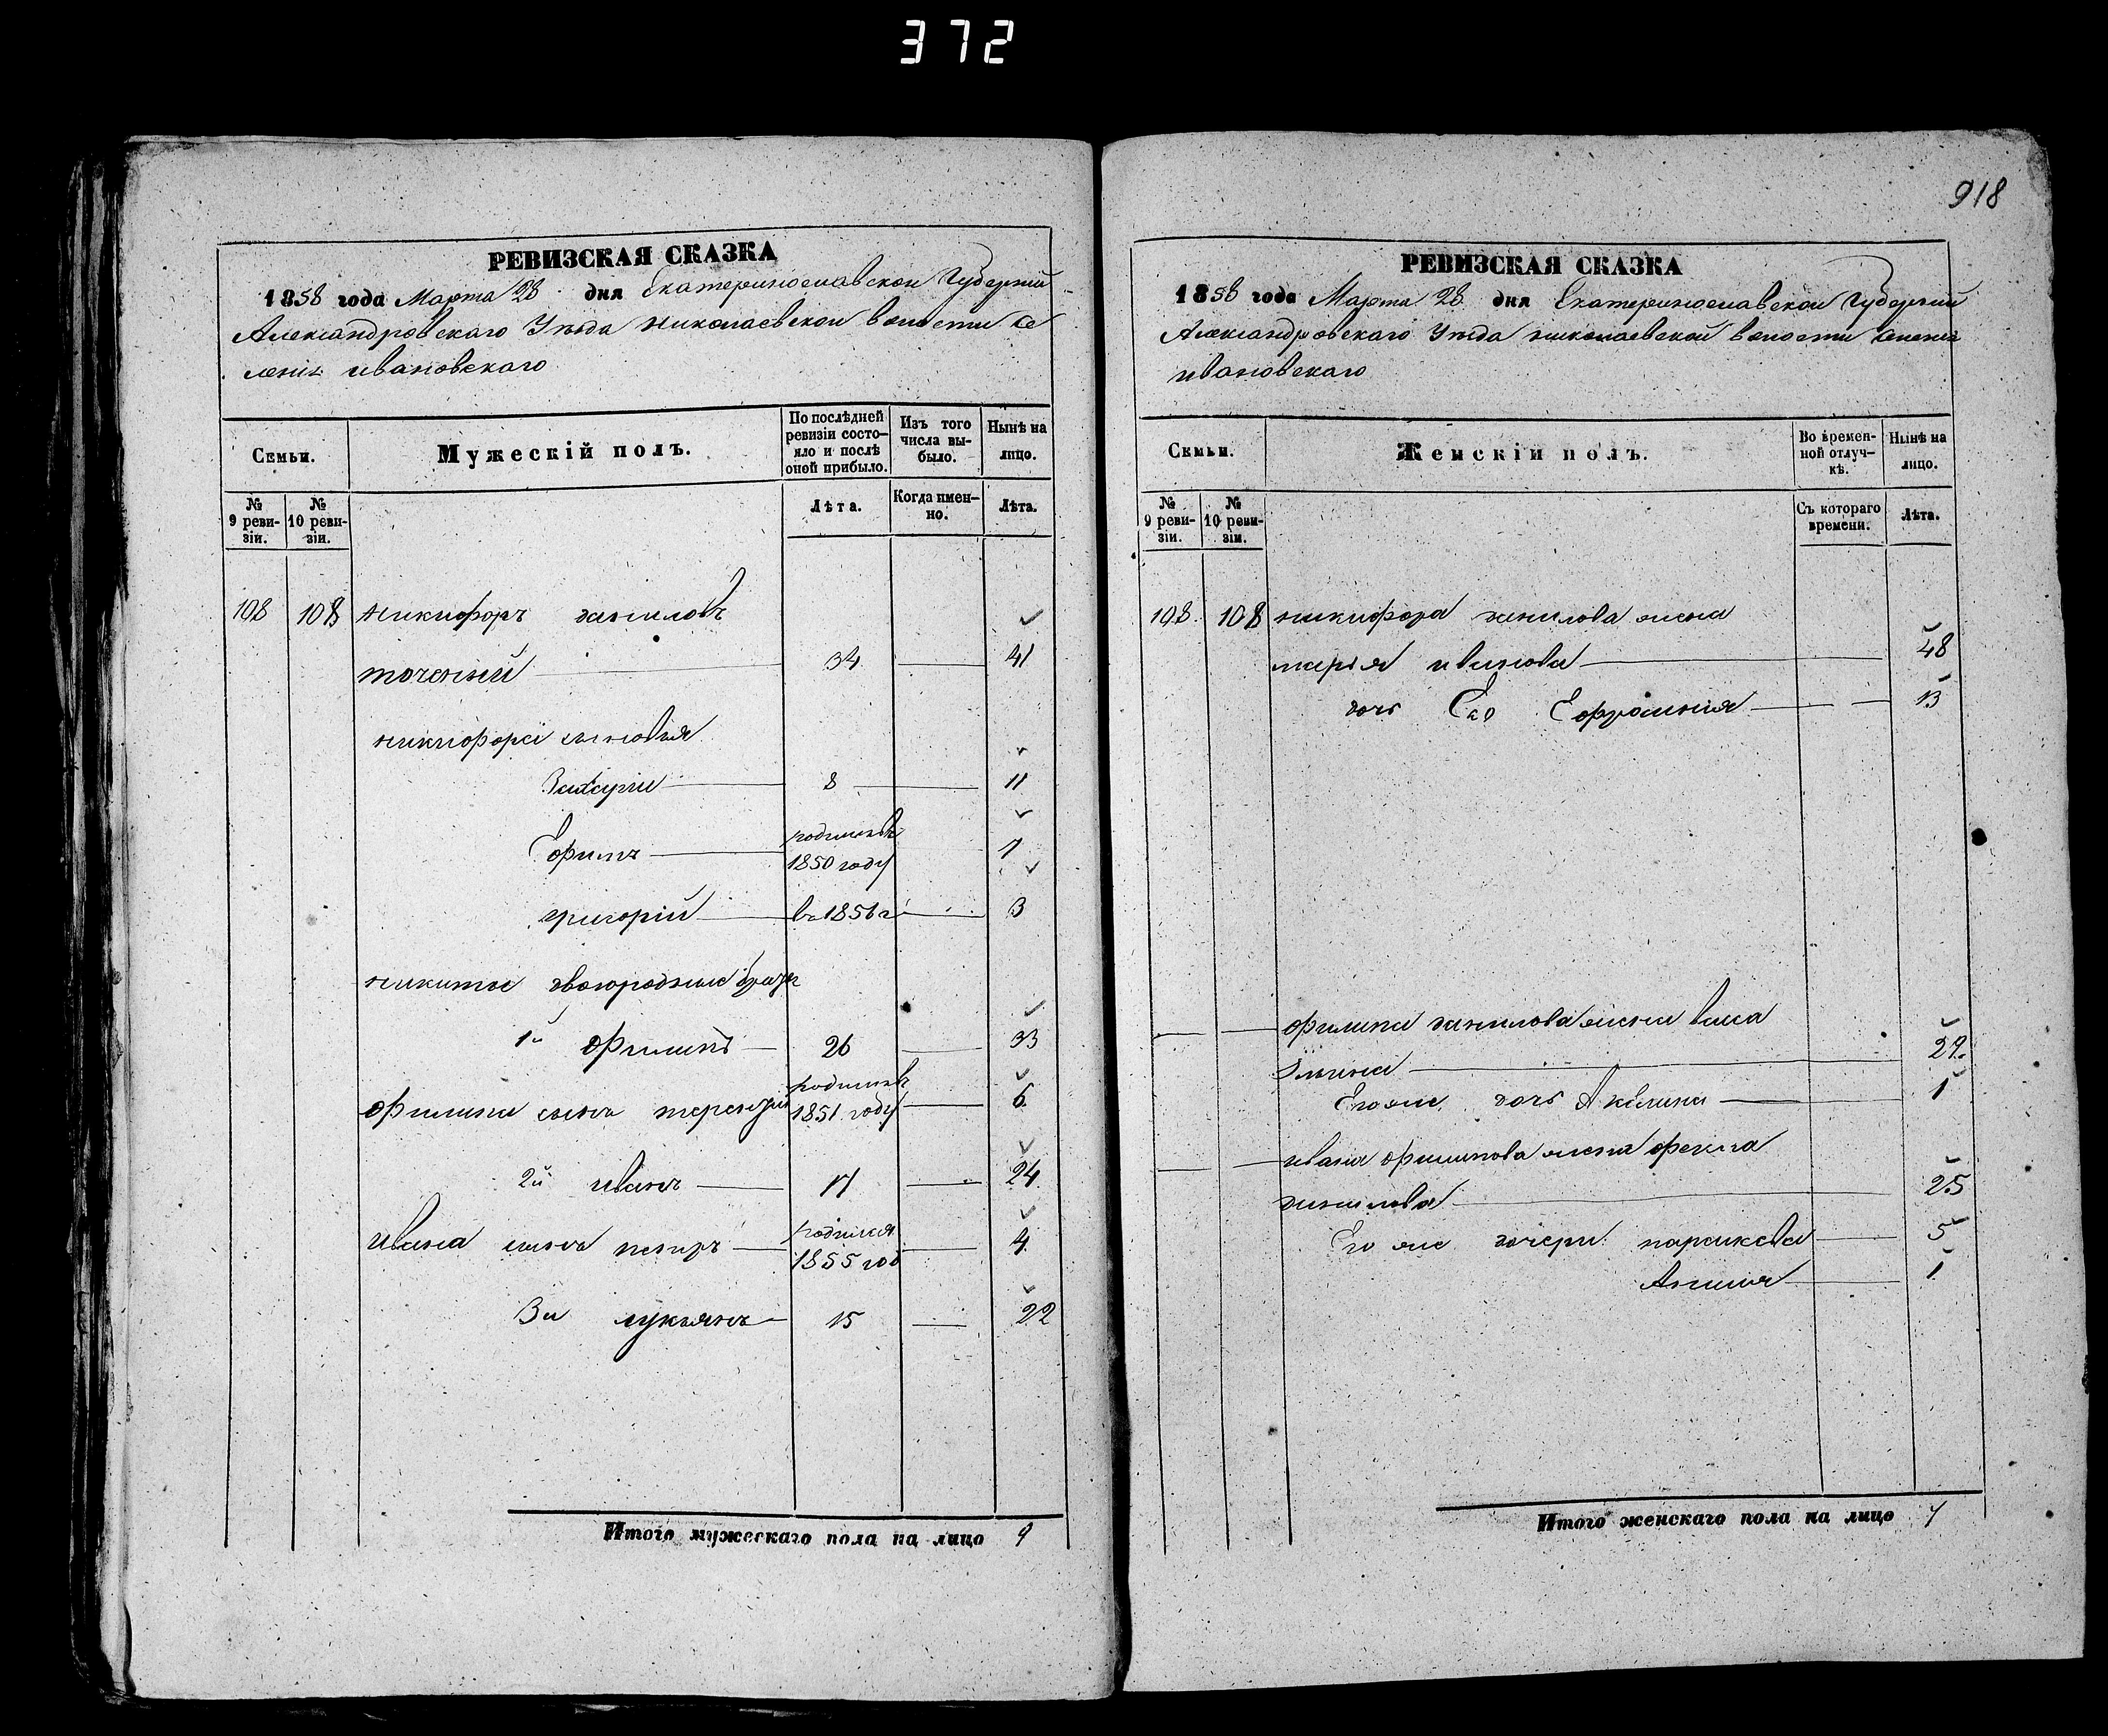 372
918
РЕВИЗСКАЯ СКАЗКА
1858 года Марта 28 дня Екатеринославской Губерніи
Александровскаго Уезда николаевской волости се
ленія ивановскаго
Семьи.
Мужескій полъ.
По послѣдней ревизіи состо-яло и послѣ оной прибыло.
Изъ того числа вы-было.
Нынѣ на лицо.
№ 9 реви-зіи.
№ 10 реви-зіи.
Лѣта.
Когда имен-но.
Лѣта.
108 108 никифоръ даниловъ
точеный 34 41
никифора сыновья
Захарии 8 11
Ефимъ родился 1850 году 7
григорій в 1856 г 3
никиты двоюродные братя
1й Филипъ 26 33
Филипа сынъ терентий родился 1851 году 6
2й иванъ 17 24
ивана сынъ петръ родился 1855 год 4
3й лукьянъ 15 22
Итого мужескаго пола на лицо 9
РЕВИЗСКАЯ СКАЗКА
1858 года Марта 28 дня Екатеринославской Губерніи
Александровскаго Уезда николаевской волости селенія
ивановскаго
Семьи.
Женскій полъ.
Во времен-ной отлуч-кѣ.
Нынѣ на лицо.
№ 9 реви-зіи.
№ 10 реви-зіи.
Съ котораго времени.
Лѣта.
108 108 никифора данилова жена
марья иванова 48
дочь Его Ефросиния 13
филипа данилова жена васа
Ильина 29
Егоже дочь Акилина 1
ивана филипова жена фекла
данилова 25
Его же дочери параскева 5
Анна 1
Итого женскаго пола на лицо 7